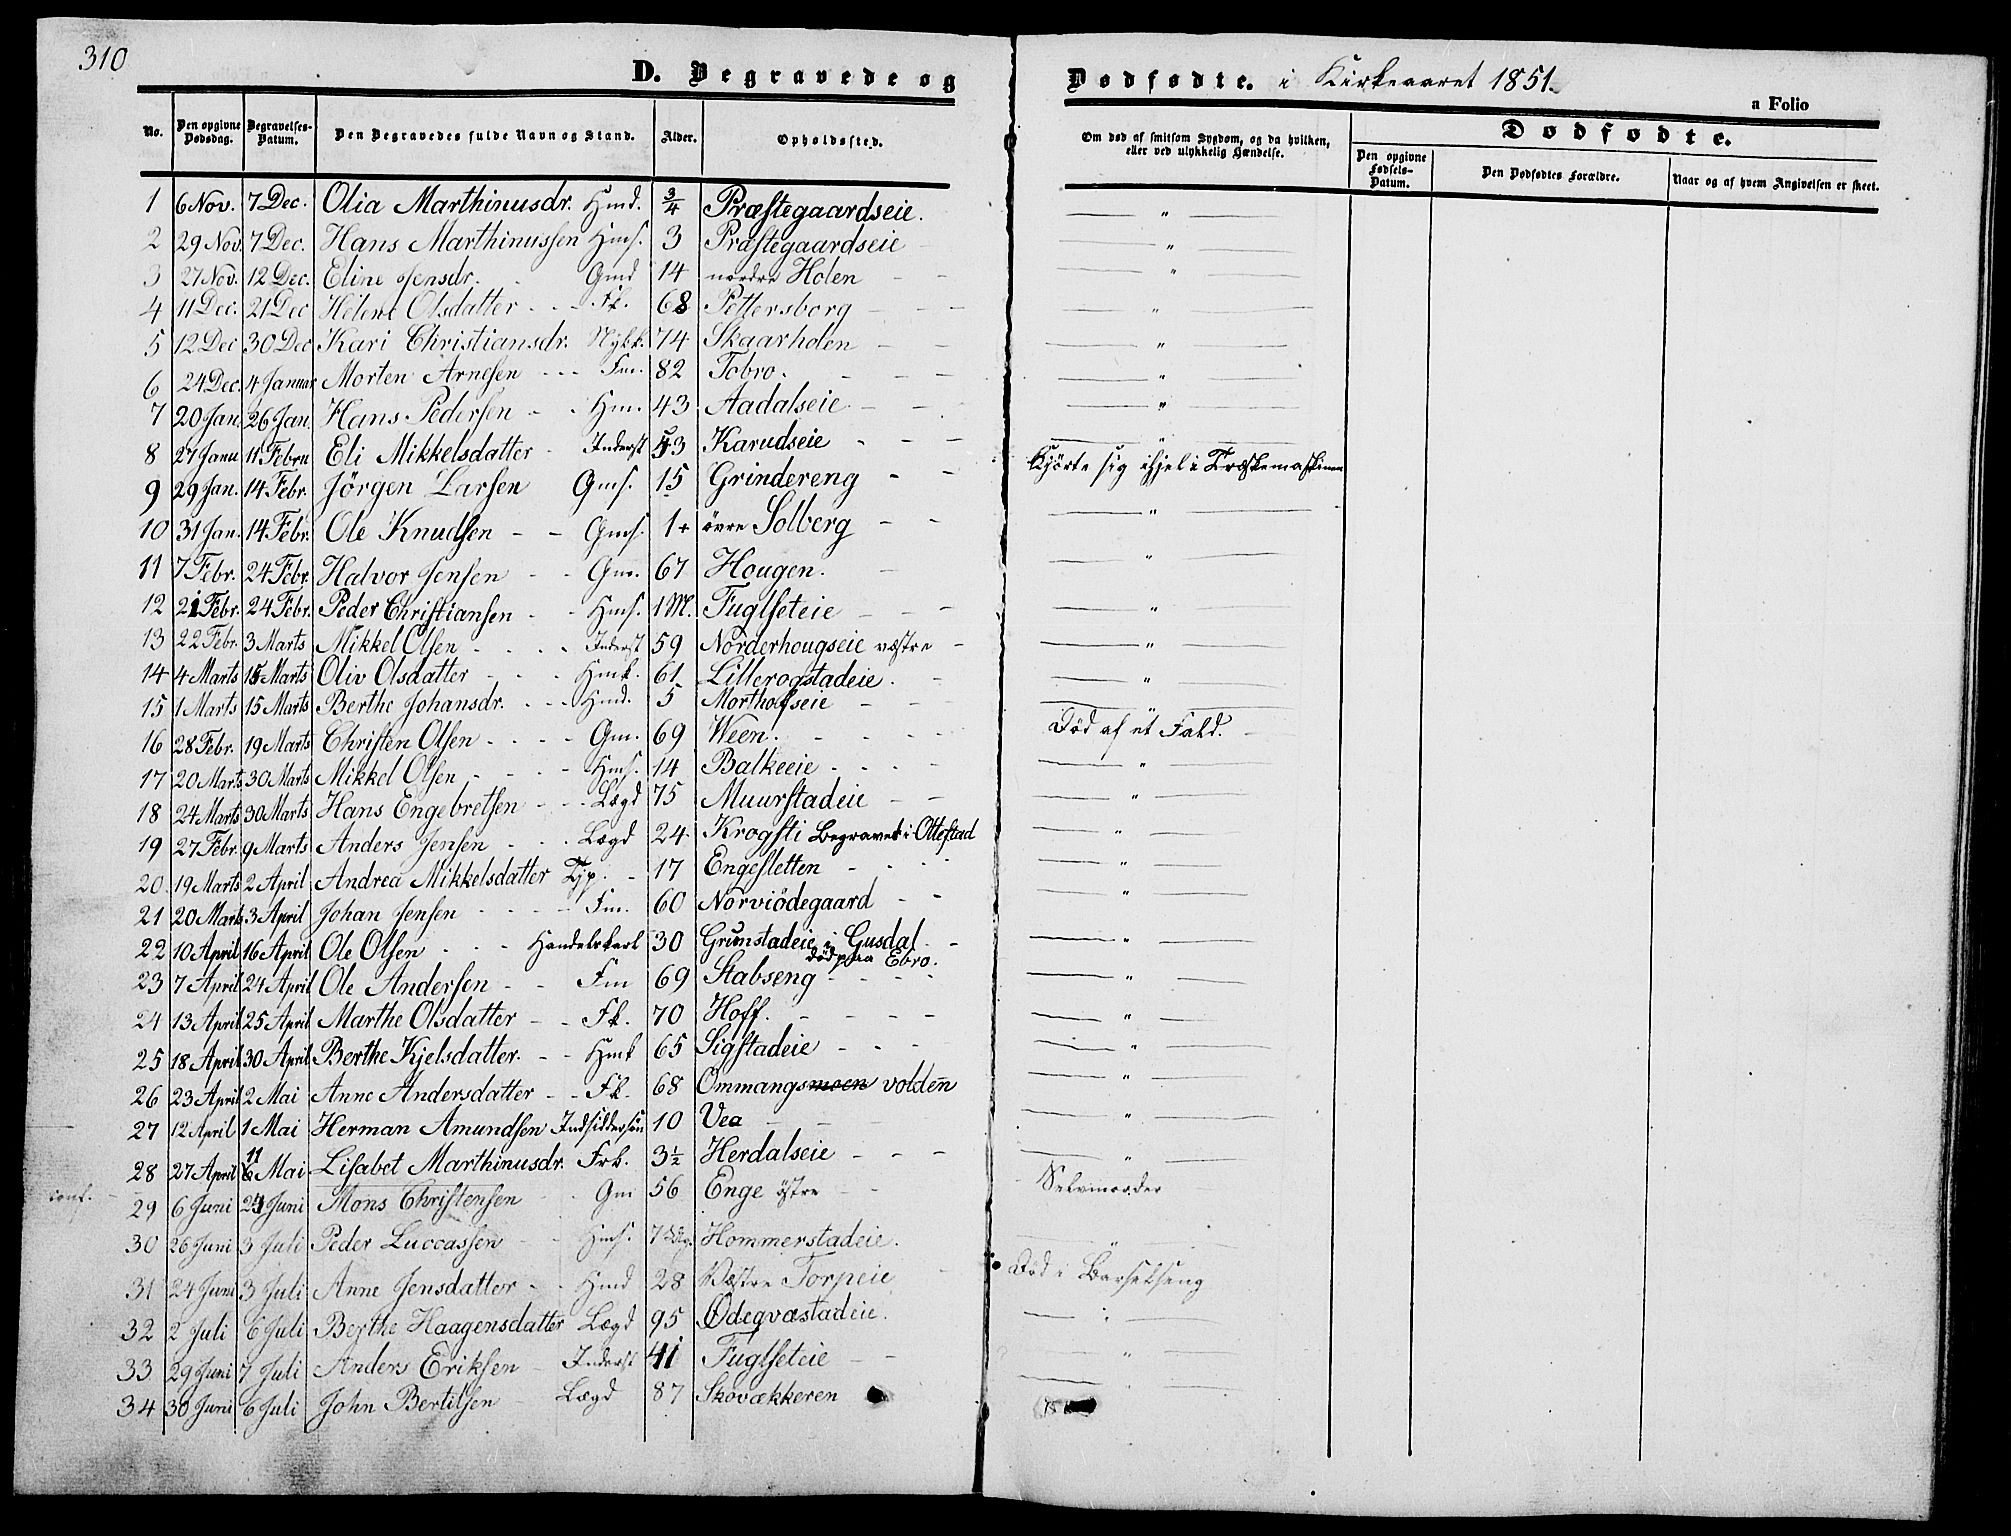 310
D. Begravede og Dødfødte. i Kirkeaaret 1851.
a Folio
No. Den opgivne Dødsdag. Begravelses-Datum. Den Begravedes fulde Navn og Stand. Alder. Opholdssted. Om død af smitsom Sygdom, og da hvilken, eller ved ulykkelig Hændelse. Dødfødte. Den opgivne Fødsels-Datum. Den Dødfødtes Forældre. Naar og af hvem Angivelsen er skeet.
1 6 Nov. 7 Dec. Olia Marthinusdr. Hmd. 3/4 Præstegaardseie. — " —
2 29 Nov. 7 Dec. Hans Marthinussen Hms. 3 Præstegaardseie — " —
3 27 Nov. 12 Dec. Eline Jensdr. Gmd 14 nordre Holen — " —
4 11 Dec. 21 Dec Helene Olsdatter Fk. 68 Pettersborg — " —
5 12 Dec 30 Dec Kari Christiansdr. Nybk. 74 Skaarholen — " —
6 24 Dec. 4 Januar Morten Arnesen Fm. 82 Tobro. — " —
7 20 Jan. 26 Jan. Hans Pedersen Hm. 43 Aadalseie — " —
8 27 Janu 11 Febru Eli Mikkelsdatter Inderst 53 Karudseie — " —
9 29 Jan. 14 Febr. Jörgen Larsen Gms. 15 Grindereng Kjörte sig ihjel i Træskemaskinen
10 31 Jan. 14 Febr. Ole Knudsen Gms. 1+ övre Solberg — " —
11 7 Febr. 24 Febr. Halvor Jensen Gm. 67 Hougen. — " —
12 21 Febr. 24 Febr. Peder Christiansen Hms. 1 M. Fuglseteie — " —
13 22 Febr. 3 Marts Mikkel Olsen Inderst 59 Norderhougseie væstre — " —
14 4 Marts 15 Marts Oliv Olsdatter Hmk. 61 Lillerogstadeie. — " —
15 1 Marts 15 Marts Berthe Johansdr. Hmd. 5 Mortholseie — " —
16 28 Febr. 19 Marts Christen Olsen Gm. 69 Ween. Död af et Fald.
17 20 Marts 30 Marts Mikkel Olsen Hms. 14 Balkeeie — " —
18 24 Marts 30 Marts Hans Engebretsen Lægd 75 Muurstadeie — " —
19 27 Febr. 9 Marts Anders Jensen Lægd 24 Krogsti Begravet i Ottestad — " —
20 19 Marts 2 April Andrea Mikkelsdatter Tjp. 17 Engesletten — " —
21 20 Marts 3 April Johan Jensen Fm. 60 Norviödegaard — " —
22 10 April 16 April Ole Olsen Handelskarl 30 Grunstadeie i Gusdal — " —
död paa Ebro.
23 7 April 24 April Ole Andersen Fm 69 Stabseng — " —
24 13 April 25 April Marthe Olsdatter Fk. 70 Hoff. — " —
25 18 April 30 April Berthe Kjelsdatter. Hmk 65 Sigstadeie — " —
26 23 April 2 Mai Anne Andersdatter Fk. 68 Ommangsmoen volden — " —
27 12 April 1 Mai Herman Amundsen Indsiddersön 10 Vea — " —
28 27 April 11 Mai Lisabet Marthinusdr. Frk. 3½ Herdalseie — " —
conf. 29 6 Juni 24 Juni Mons Christensen Gm 56 Enge östre Selvmorder
30 26 Juni 3 Juli Peder Luccassen Hms. 7 Hommerstadeie. — " —
31 24 Juni 3 Juli Anne Jensdatter Hmd 28 Væstre Torpeie Död i Barselseng
32 2 Juli 6 Juli Berthe Haagensdatter Lægd 95 Ødegvæstadeie. — " —
33 29 Juni 7 Juli Anders Eriksen Inderst 41 Fuglseteie — " —
34 30 Juni 6 Juli John Bertilsen Lægd 87 Skovækkeren — " —